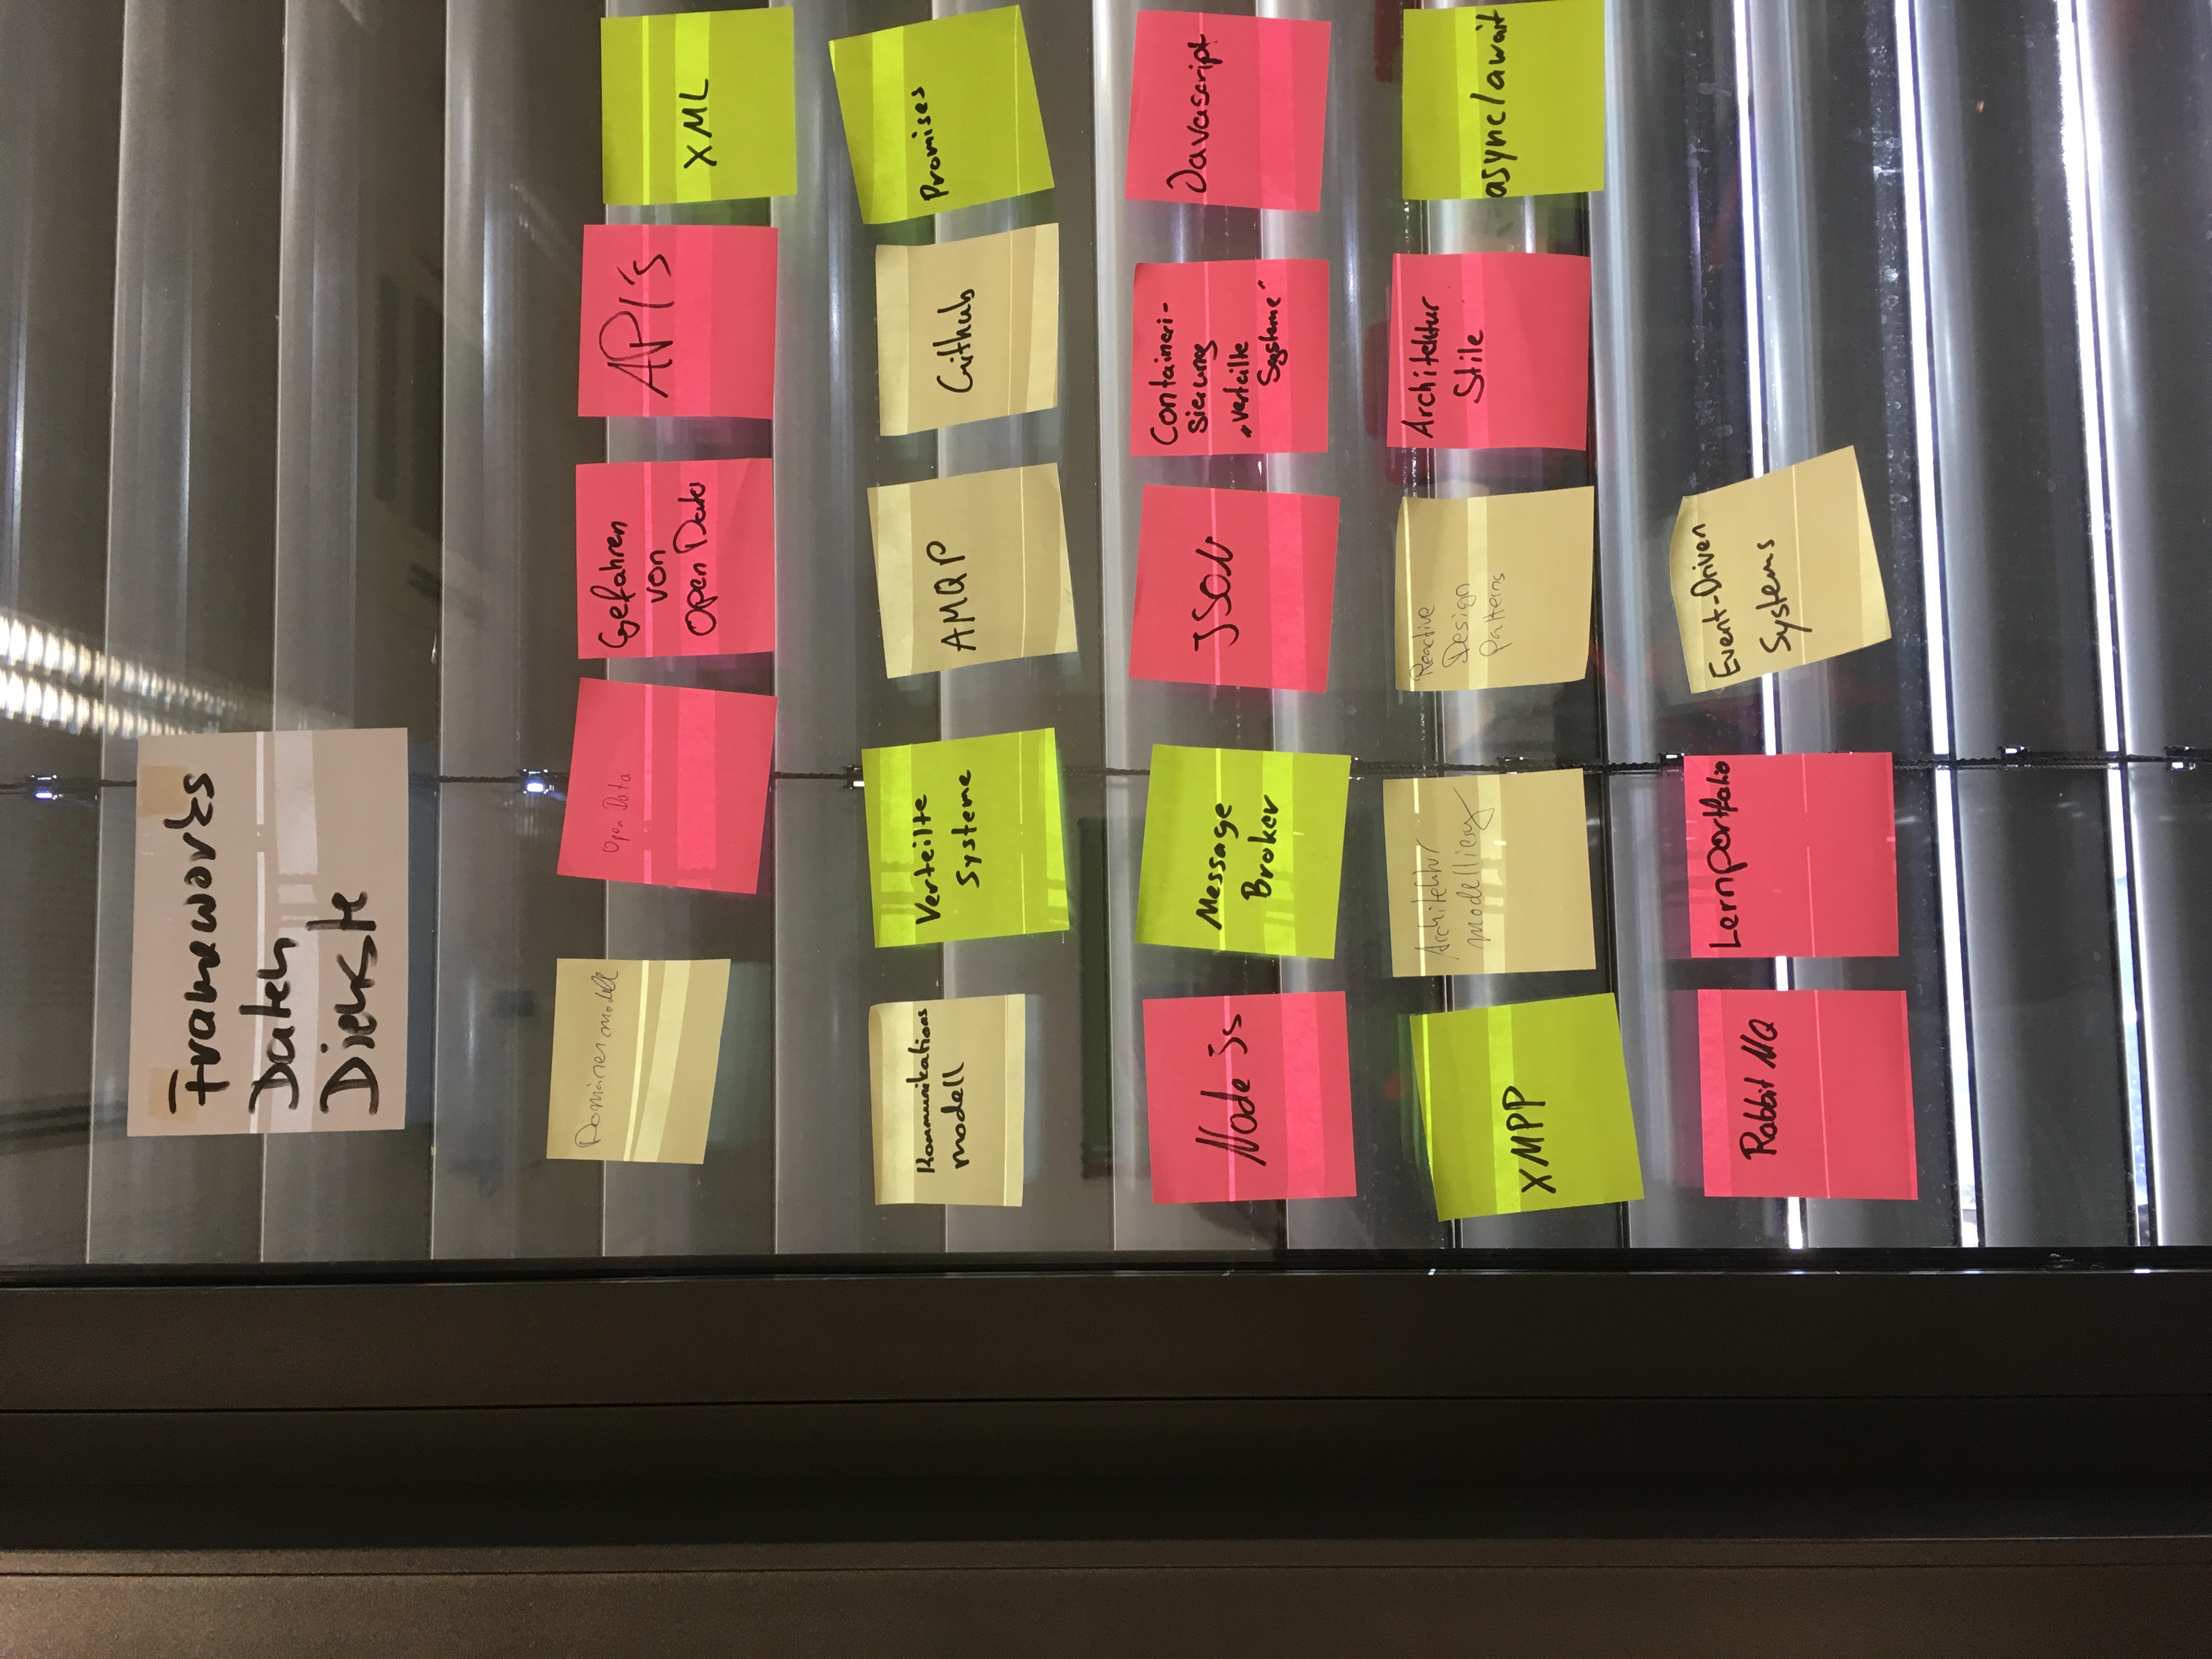 Frameworks
Daten
Dienste
Domänenmodell
Open Data
Gefahren
von
Open Data
API's
XML
Kommunikations
modell
Verteilte
Systeme
AMQP
Github
Promises
Node js
Message
Broker
JSON
Containeri-
sierung
„verteilte
Systeme“
Javascript
XMPP
Architektur
modellierung
Reactive
Design
Patterns
Architektur
Stile
async/await
Rabbit MQ
Lernportfolio
Event-Driven
Systems